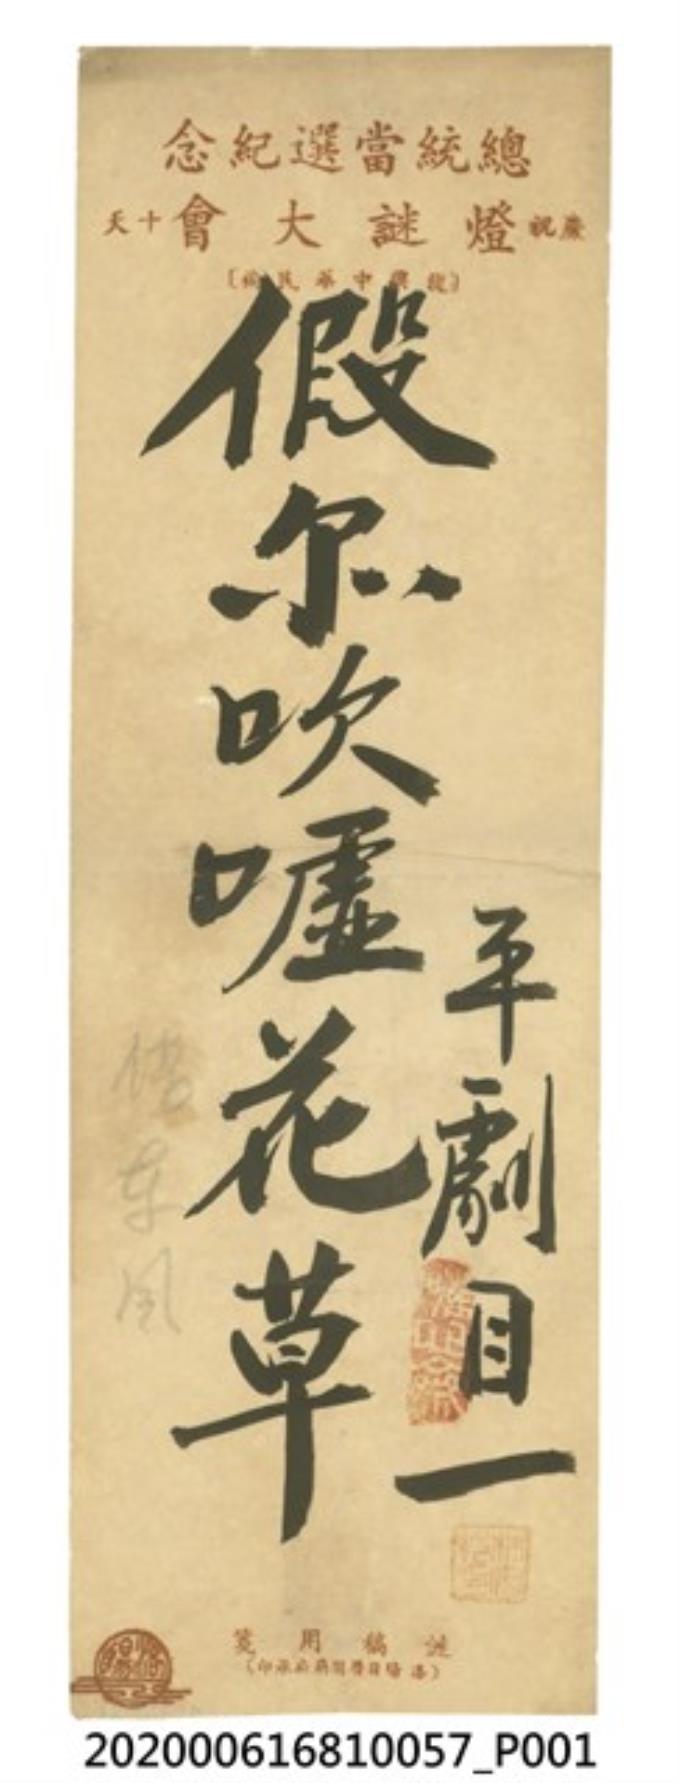 總統當選紀念
慶祝燈謎大會十天
假尔吹噓花草
平劇目一
借東風
謎稿用箋
202000616810057_P001